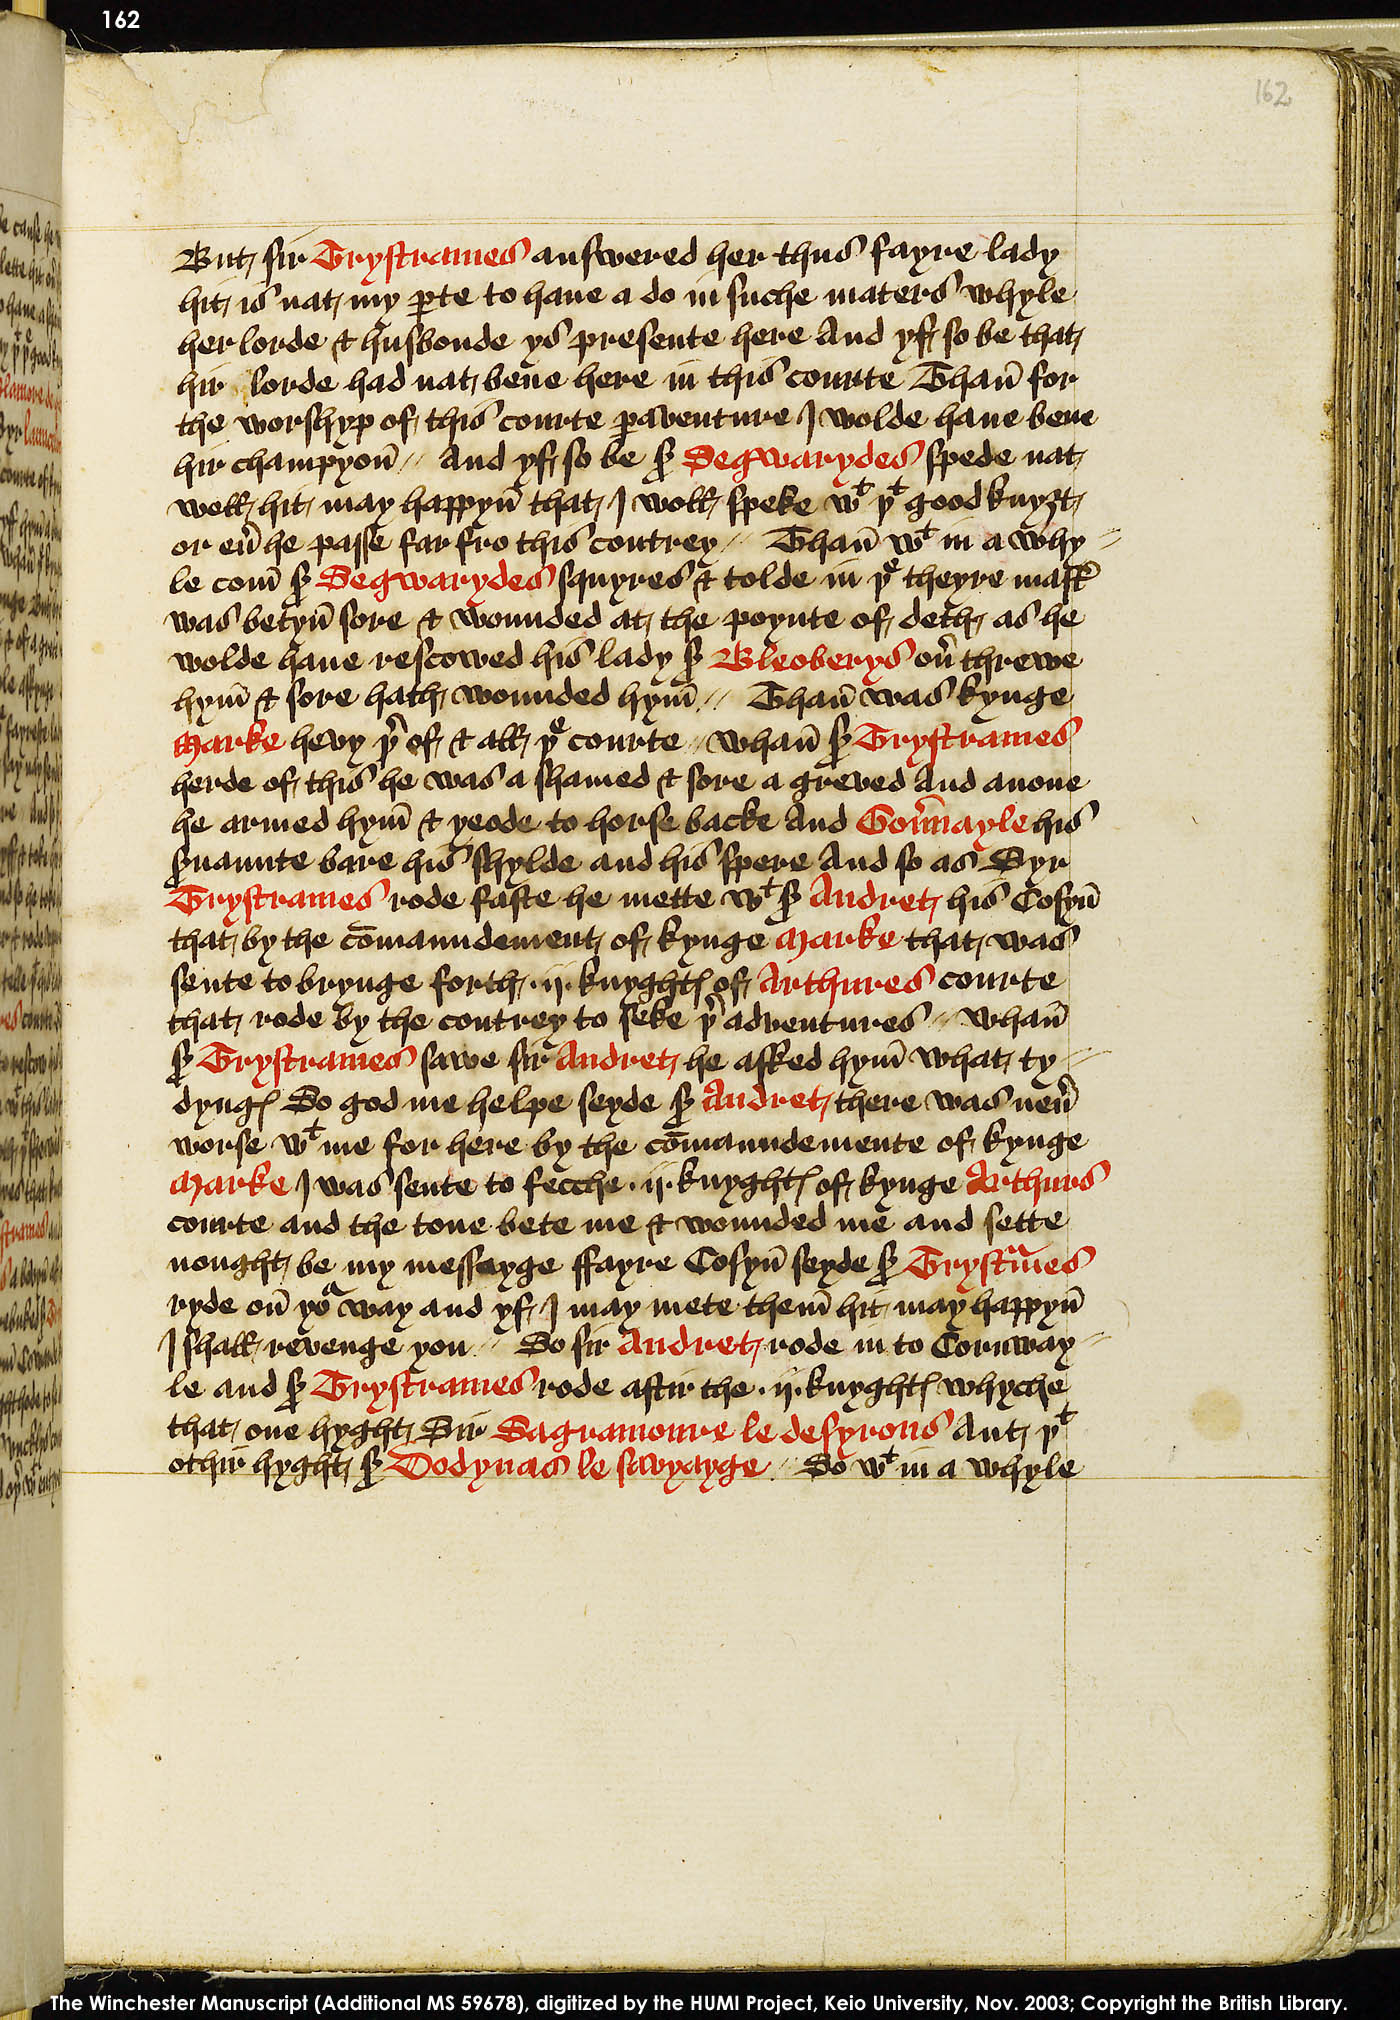 162
162
But sir Trystrames answered her thus fayre lady
hit is nat my ꝑte to haue a do in suche maters whyle
her lorde & husbonde ys presente here And yf so be that
hir lorde had nat bene here in this courte Than̄ for
the worshyp of this courte ꝑaventure I wolde haue bene
hir champyon̄ // And yf so be sͬ Segwarydes spede nat
well hit may happyn̄ that I woll speke wᵗ þᵗ good knyȝt
or eu̾ he passe far fro this contrey // Than̄ wᵗ in a why //
le com̄ sͬ Segwarydes squyres & tolde in þᵉ theyre mastͬ
was betyn̄ sore & wounded at the poynte of deth as he
wolde haue rescowed his lady sͬ Bleoberys ou̾ threwe
hym̄ & sore hath wounded hym̄ // Than̄ was kynge
Marke hevy þ̾ of & all þᵉ courte // whan̄ sͬ Trystrames
herde of this he was a shamed & sore a greved And anone
he armed hym̄ & yeode to horse backe And Gou̾nayle his
s̾uaunte bare his shylde and his spere And so as Syr
Trystrames rode faste he mette wᵗ sͬ Andret his Cosyn̄
that by the com̄aundement of kynge Marke that was
sente to brynge forth .ij. knyghtꝭ of Arthures courte
that rode by the contrey to seke þ̾ adventures // whan̄
sͬ Trystrames sawe sir Andret he asked hym̄ what ty //
dyngꝭ So god me helpe seyde sͬ Andret there was neu̾
worse wᵗ me for here by the com̄aundemente of kynge
Marke I was sente to fecche .ij. knyghtꝭ of kynge Arthurs
courte and the tone bete me & wounded me and sette
nought be my messayge ffayre Cosyn̄ seyde sͬ Trystᵃmes
ryde on̄ yoͬ way and yf I may mete them̄ hit may happyn̄
I shall revenge you // So sir Andret rode in to Cornway //
le and sͬ Trystrames rode aftir the .ij. knyghtꝭ whyche
that one hyght Sir Sagramoure le desyrous Ant þᵗ
othir hyght sͬ Dodynas le savyayge // So wᵗ in a whyle
The Winchester Manuscript (Additional MS 59678), digitized by the HUMI Project, Keio University, Nov. 2003; Copyright the British Library.